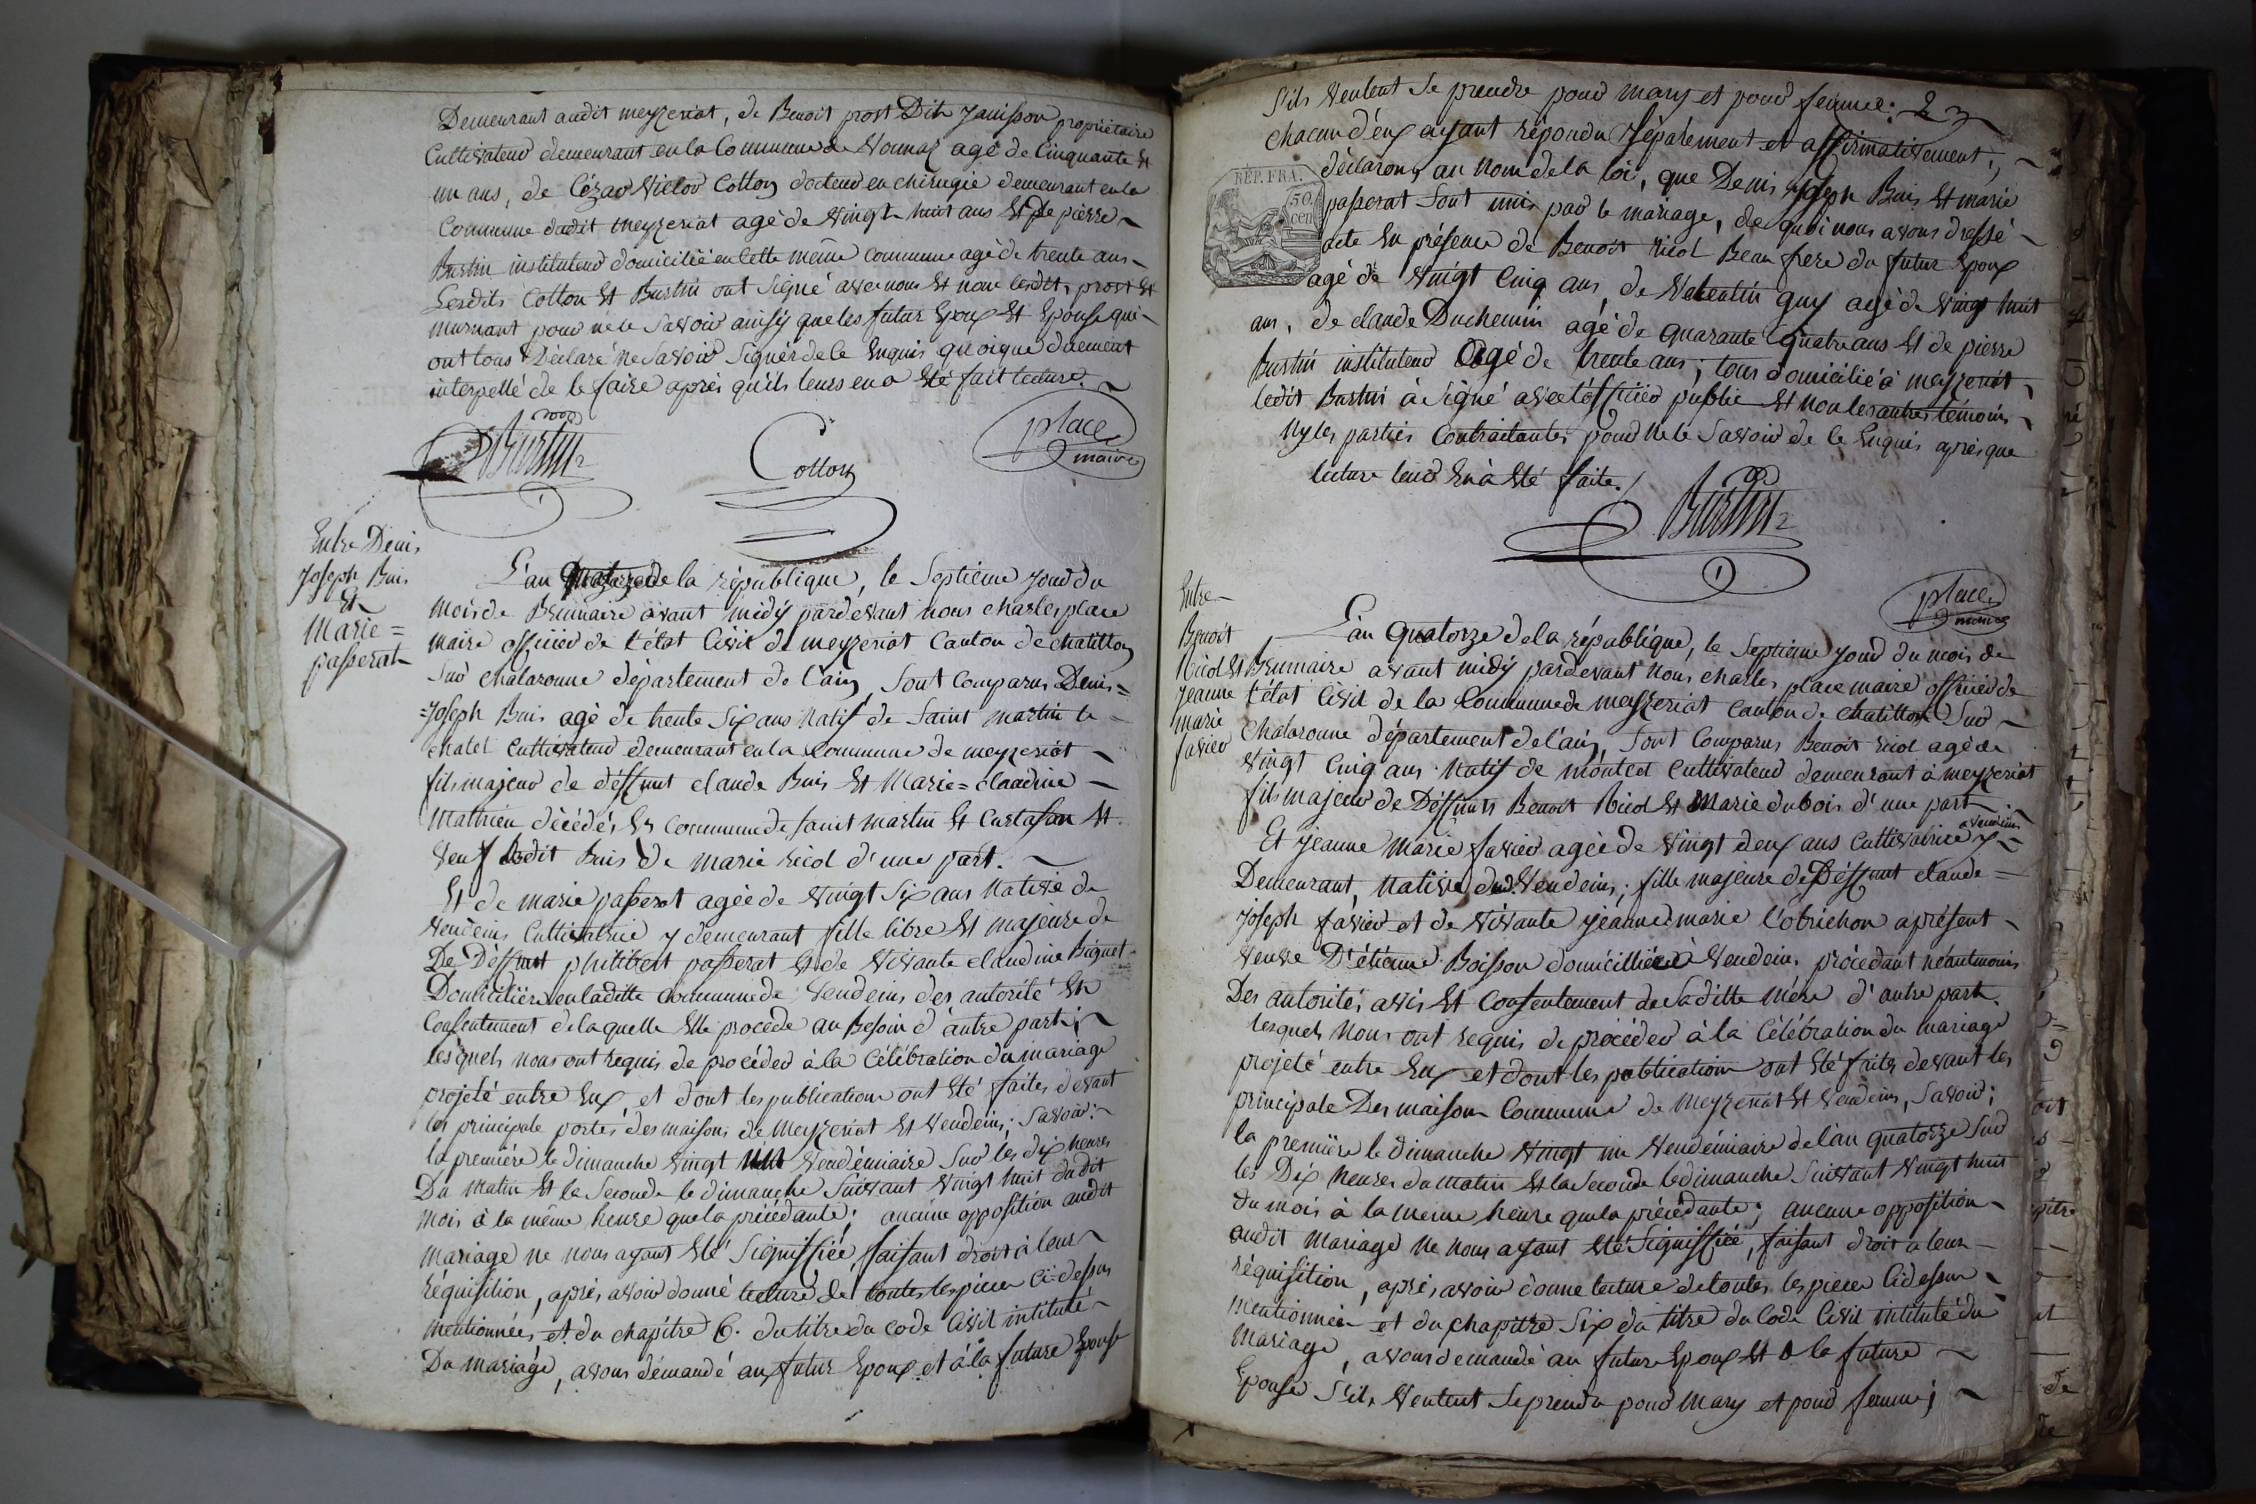 Demeurant audit meyzeriat, de Benoit prost Dit Janisson propriétaire
Cultivateur demeurant en la Commune de Vonnaz agé de Cinquante Et
un ans, de Cézar Victor Cotton docteur en chirugie demeurant en la
Commune dudit meyzeriat agé de Vingt huit ans Et de pierre
Burtin instituteur domicilié en Cette même commune agé de trente ans
Lesdits Cotton Et Burtin ont Signé avec nous Et non lesdits prost Et
pour ne le Savoir ainsy que les futur Epoux Et Epouse qui
ont tous Déclaré ne Savoir Signer de ce Enquis quoique duement
interpellé de le faire après qu'ils leurs en a Eté fait lecture.
Burtin
Cotton
place
maire
Entre Denis
Joseph Buis
Et
Marie =
passerat
L'an Quatorze de la république, le Septième Jour du
mois de Brumaire avant midy pardevant nous charles place
maire officier de L'état Civil de meyzeriat Canton de chatillon
Sur chalaronne département de l'ain, Sont Comparus Denis =
= Joseph Buis agé de trente Six ans Natif de Saint martin le
chatel Cultivateur demeurant en la Commune de meyzeriat
fils majeur de deffunt claude Buis Et Marie = claudine
Mathieu décédés En Commune de Saint martin Et Curtafon Et
Veuf ledit Buis de marie ricol d'une part.
Et de marie passerat agée de Vingt Six ans Native de
Vendeins Cultivatrice y demeurant fille libre Et majeure de
De Deffunt philibert passerat Et de Vivante claudine Biguet
Domiciliée en laditte Commune de Vendeins des autorité Et
Consentement de laquelle Elle procède au Besoin d'autre part;
lesquels nous ont requis de procéder à la Célébration du mariage
projeté entre Eux, et dont les publications ont Eté faites devant
les principale portes des maisons de Meyzeriat Et Vendeins; Savoir:
la première le dimanche Vingt un Vendémiaire Sur les dix heures
Du matin Et la Seconde le dimanche Suivant Vingt huit dudit
mois à la même heure que la précédante; aucune opposition audit
mariage ne nous ayant Eté Signiffiée, faisant droit à leur
réquisition, après avoir donné lecture de toutes les pièces Ci-dessus
mentionnées, et du chapitre 6. du titre du code Civil intitulé
Du mariage, avons demandé aux futur Epoux et à la future Epouse
S'ils Veulent Se prendre pour mary et pour femme:
chacun d'eux ayant répondu Séparément et affirmativement;
RÉP. FRA.
50
cen
déclarons au nom de la loi, que Denis Joseph Buis Et marie
passerat Sont unis par le mariage, de quoi nous avons dressé
acte En présence de Benoit ricol Beau frere du futur Epoux
agé de Vingt Cinq ans, de Valentin guy agé de Vingt huit
ans, de claude Duchemin agé de quarante quatre ans Et de pierre
Burtin instituteur agé de trente ans; tous domicilié à meyzeriat
ledit Burtin à Signé avec l'officier public Et non les autres témoins
Ny les parties Contraitantes pour Ne le Savoir de Ce Enquis après que
lecture leur En à Eté faite.
Burtin
place
maire
Entre
Benoit
Ricol Et
Jeanne
marie
favier
L'an Quatorze de la république, le Septième jour du mois de
Brumaire avant midy pardevant nous charles place maire officier de
l'état Civil de la Commune de meyzeriat Canton de chatillon Sur
Chalaronne département de l'ain, Sont Comparus Benoit ricol agé de
Vingt Cinq ans Natif de montcet Cultivateur demeurant à meyzeriat
fils majeur de Deffunts Benoit Ricol Et Marie dubois d'une part
Et jeanne marie favier agée de Vingt deux ans Cultivatrice y
a Vendeins
Demeurant, Native dud. Vendeins; fille majeure de Deffunt claude =
joseph favier et de Vivante jeanne marie Cobrichon aprésent
Veuve D'étienne Boisson domicilliée à Vendeins procédant néantmoins
Des autorité, avis Et Consentement de Saditte mère d'autre part.
lesquels Nous ont requis de procéder à la Célébration du mariage
projeté entre Eux et dont les publications ont Eté faites devant les
principale Des maisons Commune de Meyzeriat Et Vendeins, Savoir;
la première le dimanche Vingt un Vendémiaire de l'an quatorze Sur
les Dix heures du matin Et la Seconde le dimanche Suivant Vingt huit
du mois à la même heure que la précédante; aucune opposition
audit mariage ne nous ayant Eté Signiffiée, faisant droit à leur
réquisition, après avoir donne lecture de toutes les pièces Cidessus
mentionnées et du chapitre Six du titre du Code Civil intitulé du
Mariage, avons demandé au future Epoux Et à la future
Epouse S'ils Veulent Se prendre pour mary et pour femme;